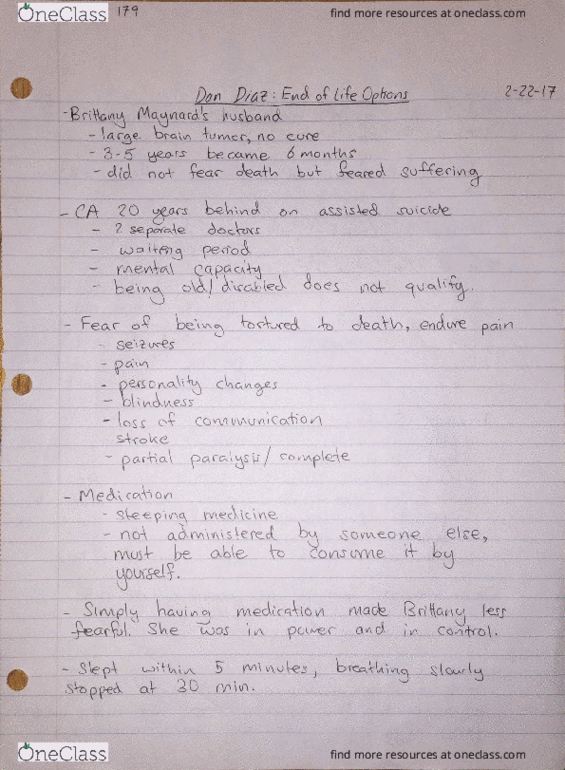 OneClass 179 find more resources at oneclass.com
Dan Diaz: End of Life Options 2-22-17
-Brittany Maynard's husband
-large brain tumer, no cure
- 3-5 years became 6 months
- did not fear death but feared suffering
- CA 20 years behind on assisted suicide
- 2 separate doctors
- waiting period
- mental capacity
- being old/disabled does not qualify.
- Fear of being tortured to death, endure pain
seizures
- pain
- personality changes
- blindness
- loss of communication
stroke
- partial paralysis/complete
- Medication
- sleeping medicine
- not administered by someone else,
must be able to consume it by
yourself.
- Simply having medication made Brittany less
fearful. She was in power and in control.
- Slept within 5 minutes, breathing slowly
stopped at 30 min.
OneClass find more resources at oneclass.com